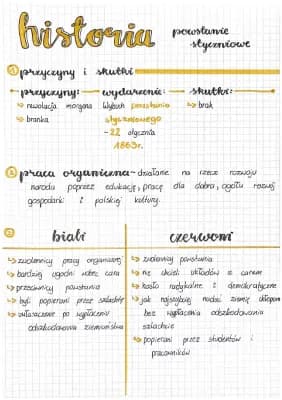 historia
powstanie
styczniowe
1 przyczyny i skutki
przyczyny: wydarzenie: skutki:
↳ rewolucja moralna Wybuch powstania ↳ brak
↳ branka styczniowego
-22 stycznia
1863r.
2 praca organiczna - działanie na rzecz rozwoju
narodu poprzez edukację, pracę dla dobra, ogółu rozwój
gospodarki i polskiej kultury.
3
biali czerwoni
↳ zwolennicy pracy organicznej ↳ zwolennicy powstania
↳ bardziej ugodni wobec cara ↳ nie chcieli układów z carem
↳ przeciwnicy powstania ↳ hasła radykalne i demokratyczne
↳ byli popierani przez szlachtę ↳ jak najszybciej nadać ziemię chłopom
↳ uwłaszczenie po wypłaceniu bez wypłacenia odszkodowania
odszkodowania ziemiaństwu szlachcie
↳ popierani przez studentów i
pracowników